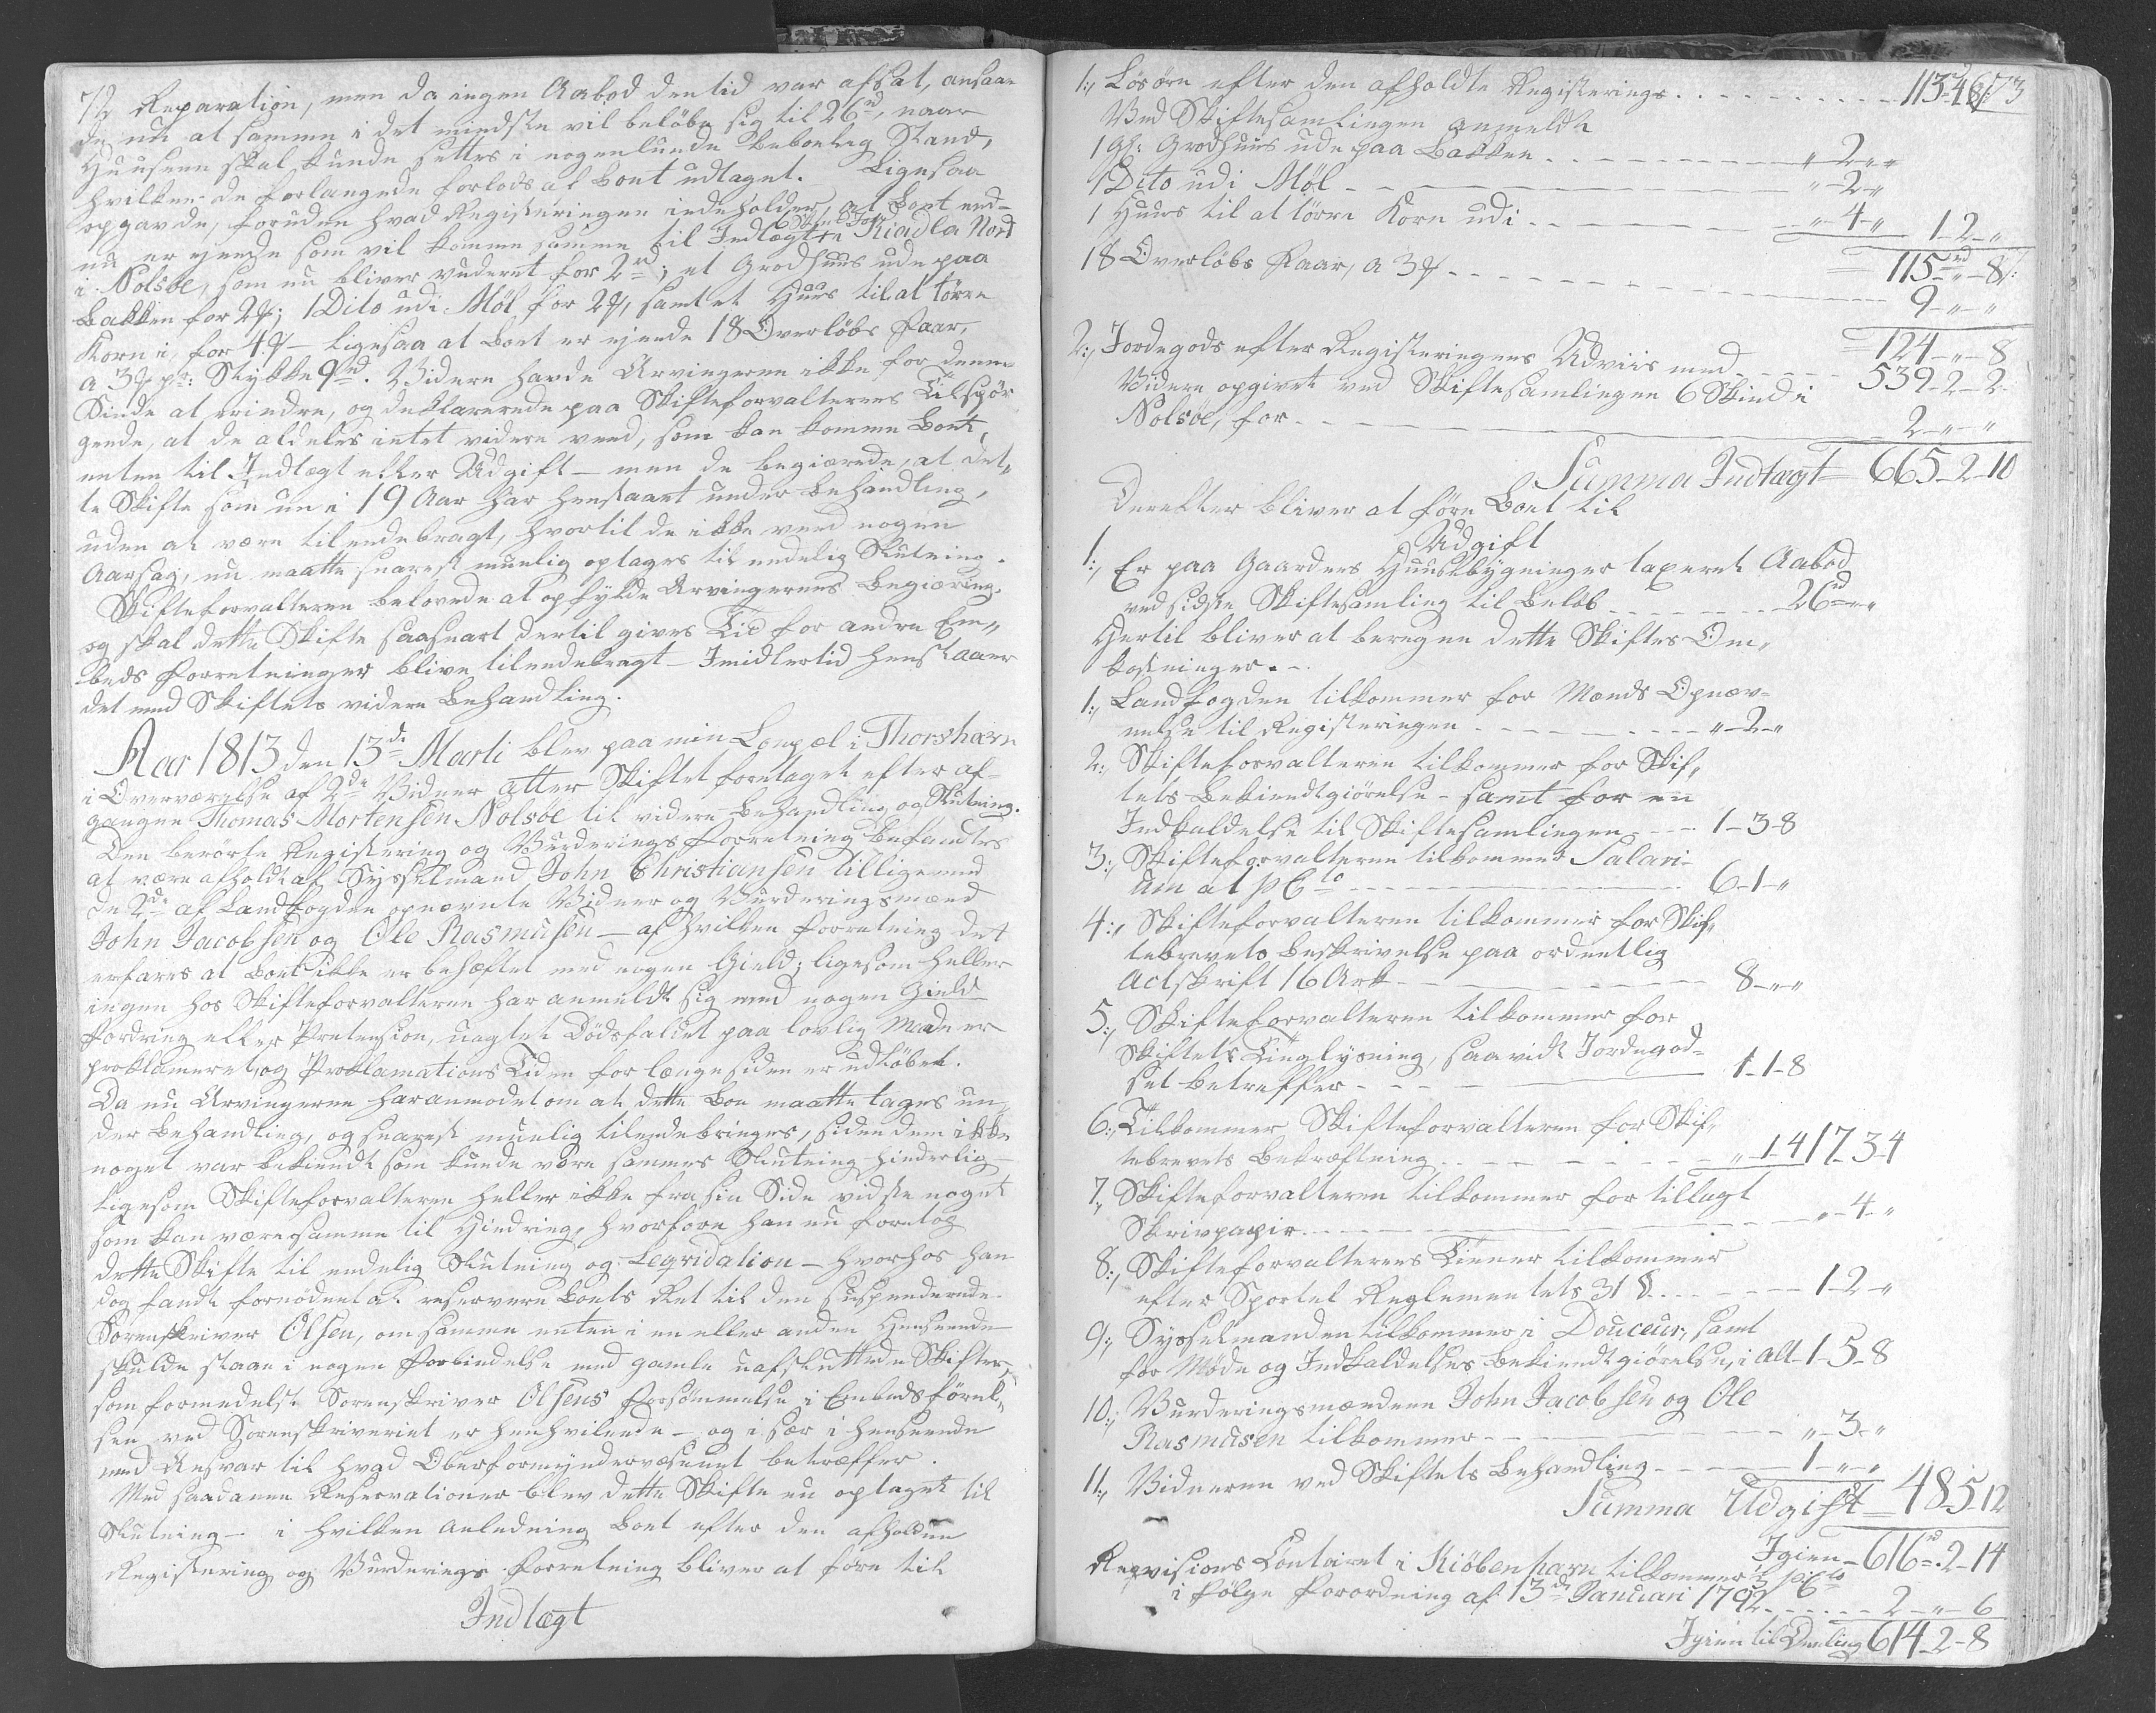 72 Reparation, men da ingen Aabod den tid var afsat, ansaae
de nu at samme i det mindste vil beløbe sig til 26 rd, naar
Huusene skal kunde settes i nogenlunde beboelig Stand,
hvilken de forlangede forlods af Boet udtaget. Ligesaa
opgavde, foruden hvad Registeringen indeholder, at Boet end-
nu er ejende som vil komme samme til Indtægt 6 Skind Jord i Kiadla Nord
i Nolsöe, som nu bliver vuderet for 2 rd; et Grodhuus ude paa
Bakken for 2 ; 1 Dito udi Møl for 2 , samt et Huus til at törre
Korn i, for 4 – ligesaa at Boet er ejende 18 Overløbs Faar,
a 3 pr: Stykke 9 rd. Videre havde Arvingerne ikke for denne
Sinde at erindre, og deklarerede paa Skifteforvalterens Tilspör
gende, at de aldeles intet videre veed, som kan komme Boet,
enten til Indtægt eller Udgift – men de begiærede, at det-
te Skifte som nu i 19 Aar har henstaaet under Behandling,
uden at være tilendebragt, hvortil de ikke veed nogen
Aarsag, nu maatte snarest muelig optages til endelig Slutning.
Skifteforvalteren belovede at opfylde Arvingernes Begiæring.
og skal dette Skifte saasnart dertil gives Tid for andre Em-
beds forretninger blive tilendebragt – Imidlertid henstaaer
det med Skiftets videre Behandling.
Aar 1813 den 13de Marti blev paa min Bopæl i Thorshavn
i Overværelse af 2de Vidner atter Skiftet foretaget efter af-
gangne Thomas Mortensen Nolsöe til videre Behandling og Slutning.
Den berörte Registering og Vurderings forretning befandtes
at være afholdt af Sysselmand John Christiansen tilligemed
de 2de af Landfogden opnævnte Vidner og Vurderingsmænd
John Jacobsen og Ole Rasmusen – af hvilken forretning det
erfares at Boet ikke er behæftet med nogen Gield; ligesom heller
ingen hos Skifteforvalteren har anmeldt sig med nogen Gield
fordring eller Prætension, uagtet Dödsfaldet paa lovlig Maade er
proklameret, og Proklamations Tiden for længe siden er udløben.
Da nu Arvingerne har anmodet om at dette Boe maatte tages un-
der Behandling, og snarest muelig tilendebringes, siden dem ikke
noget var bekiendt som kunde være sammes Slutning hinderlig –
ligesom Skifteforvalteren heller ikke fra sin Side vidste noget
som kan være samme til Hindring, hvorfore han nu foretog
dette Skifte til endelig Slutning og Leqvidation – hvorhos han
dog fandt fornöden at reservere Boets Ret til den suspenderede
Sorenskriver Olsen, om samme enten i en eller anden Henseende
skulde staae i nogen forbindelse med gamle uafsluttede Skifter,
som formedelst Sorenskriver Olsens forsömmelse i Embedsförel-
sen ved Sorenskriveriet er henhvilende – og i sær i henseende
med Ansvar til hvad Oberformyndervæsenet betræffer.
Med saadanne Reservationer blev dette Skifte nu optaget til
Slutning – i hvilken Anledning Boet efter den afholdne
Registering og Vurderings forretning bliver at före til
Indtægt
73
1:, Lösöre efter den afholdte Registerings . . . 113 4 8
Ved Skiftesamlingen anmeldte
1 Gl: Grodhuus ude paa Bakken . . . „ 2 „
1 Dito udi Møl – – – „ 2 „
1 Huus til at törre Korn udi . . . „ 4 „ 1 2 „
115 rd „ 8
18 Overløbs Faar, a 3 . . . 9 „ „
124 „ 8
2:, Jordegods efter Registeringens Udviis med . . . 539 2 2
Videre opgivet ved Skiftesamlingen 6 Skind i
Nolsöe, for . . . 2 „ „
Summa Indtægt 665 2 10
Derefter bliver at före Boet til
Udgift
1:, Er paa Gaardens Huusebygninger taxeret Aabod
ved sidste Skiftesamling til Beløb . . . 26 rd „ „
Hertil bliver at beregne dette Skiftes Om-
kostninger. –
1:, Landfogden tilkommer for Mænds Opnæv-
nelse til Registeringen . . . „ 2 „
2:, Skifteforvalteren tilkommer for Skif-
tets Bekiendtgiörelse – samt for en
Indkaldelse til Skiftesamlingen – – 1 3 8
3:, Skifteforvalteren tilkommer Salari-
um at 1 p Cto . . . 6 1 „
4:, Skifteforvalteren tilkommer for Skif-
tebrevets Beskrivelse paa ordentlig
Actskrift 16 Ark . . . 8 „ „
5:, Skifteforvalteren tilkommer for
Skiftets Tinglysning, saavidt Jordegod-
set betreffer . . . 1 1 8
6:, Tilkommer Skifteforvalteren for Skif-
tebrevets Bekræftning . . . „ 1 4 17 3 4
7:, Skifteforvalteren tilkommer for tillagt
Skrivpapir . . . „ 4 „
8:, Skifteforvalterens Tiener tilkommer
efter Sportel Reglementets 31 § . . . 1 2 „
9:, Sysselmanden tilkommer i Douceur, samt
for Møde og Indkaldelses Bekiendtgiörelse, i alt 1 5 8
10:, Vurderingsmændene John Jacobsen og Ole
Rasmusen tilkommer . . . „ 3 „
11:, Vidnerne ved Skiftets Behandling . . . 1 „ „
Summa Udgift 48 5 12
Igien 616 rd 2 14
Revisions Contoiret i Kiöbenhavn tilkommer p Cto
i fölge Forordning af 13de Januari 1792 . . . 2 „ 6
Igien til Deeling 614 2 8